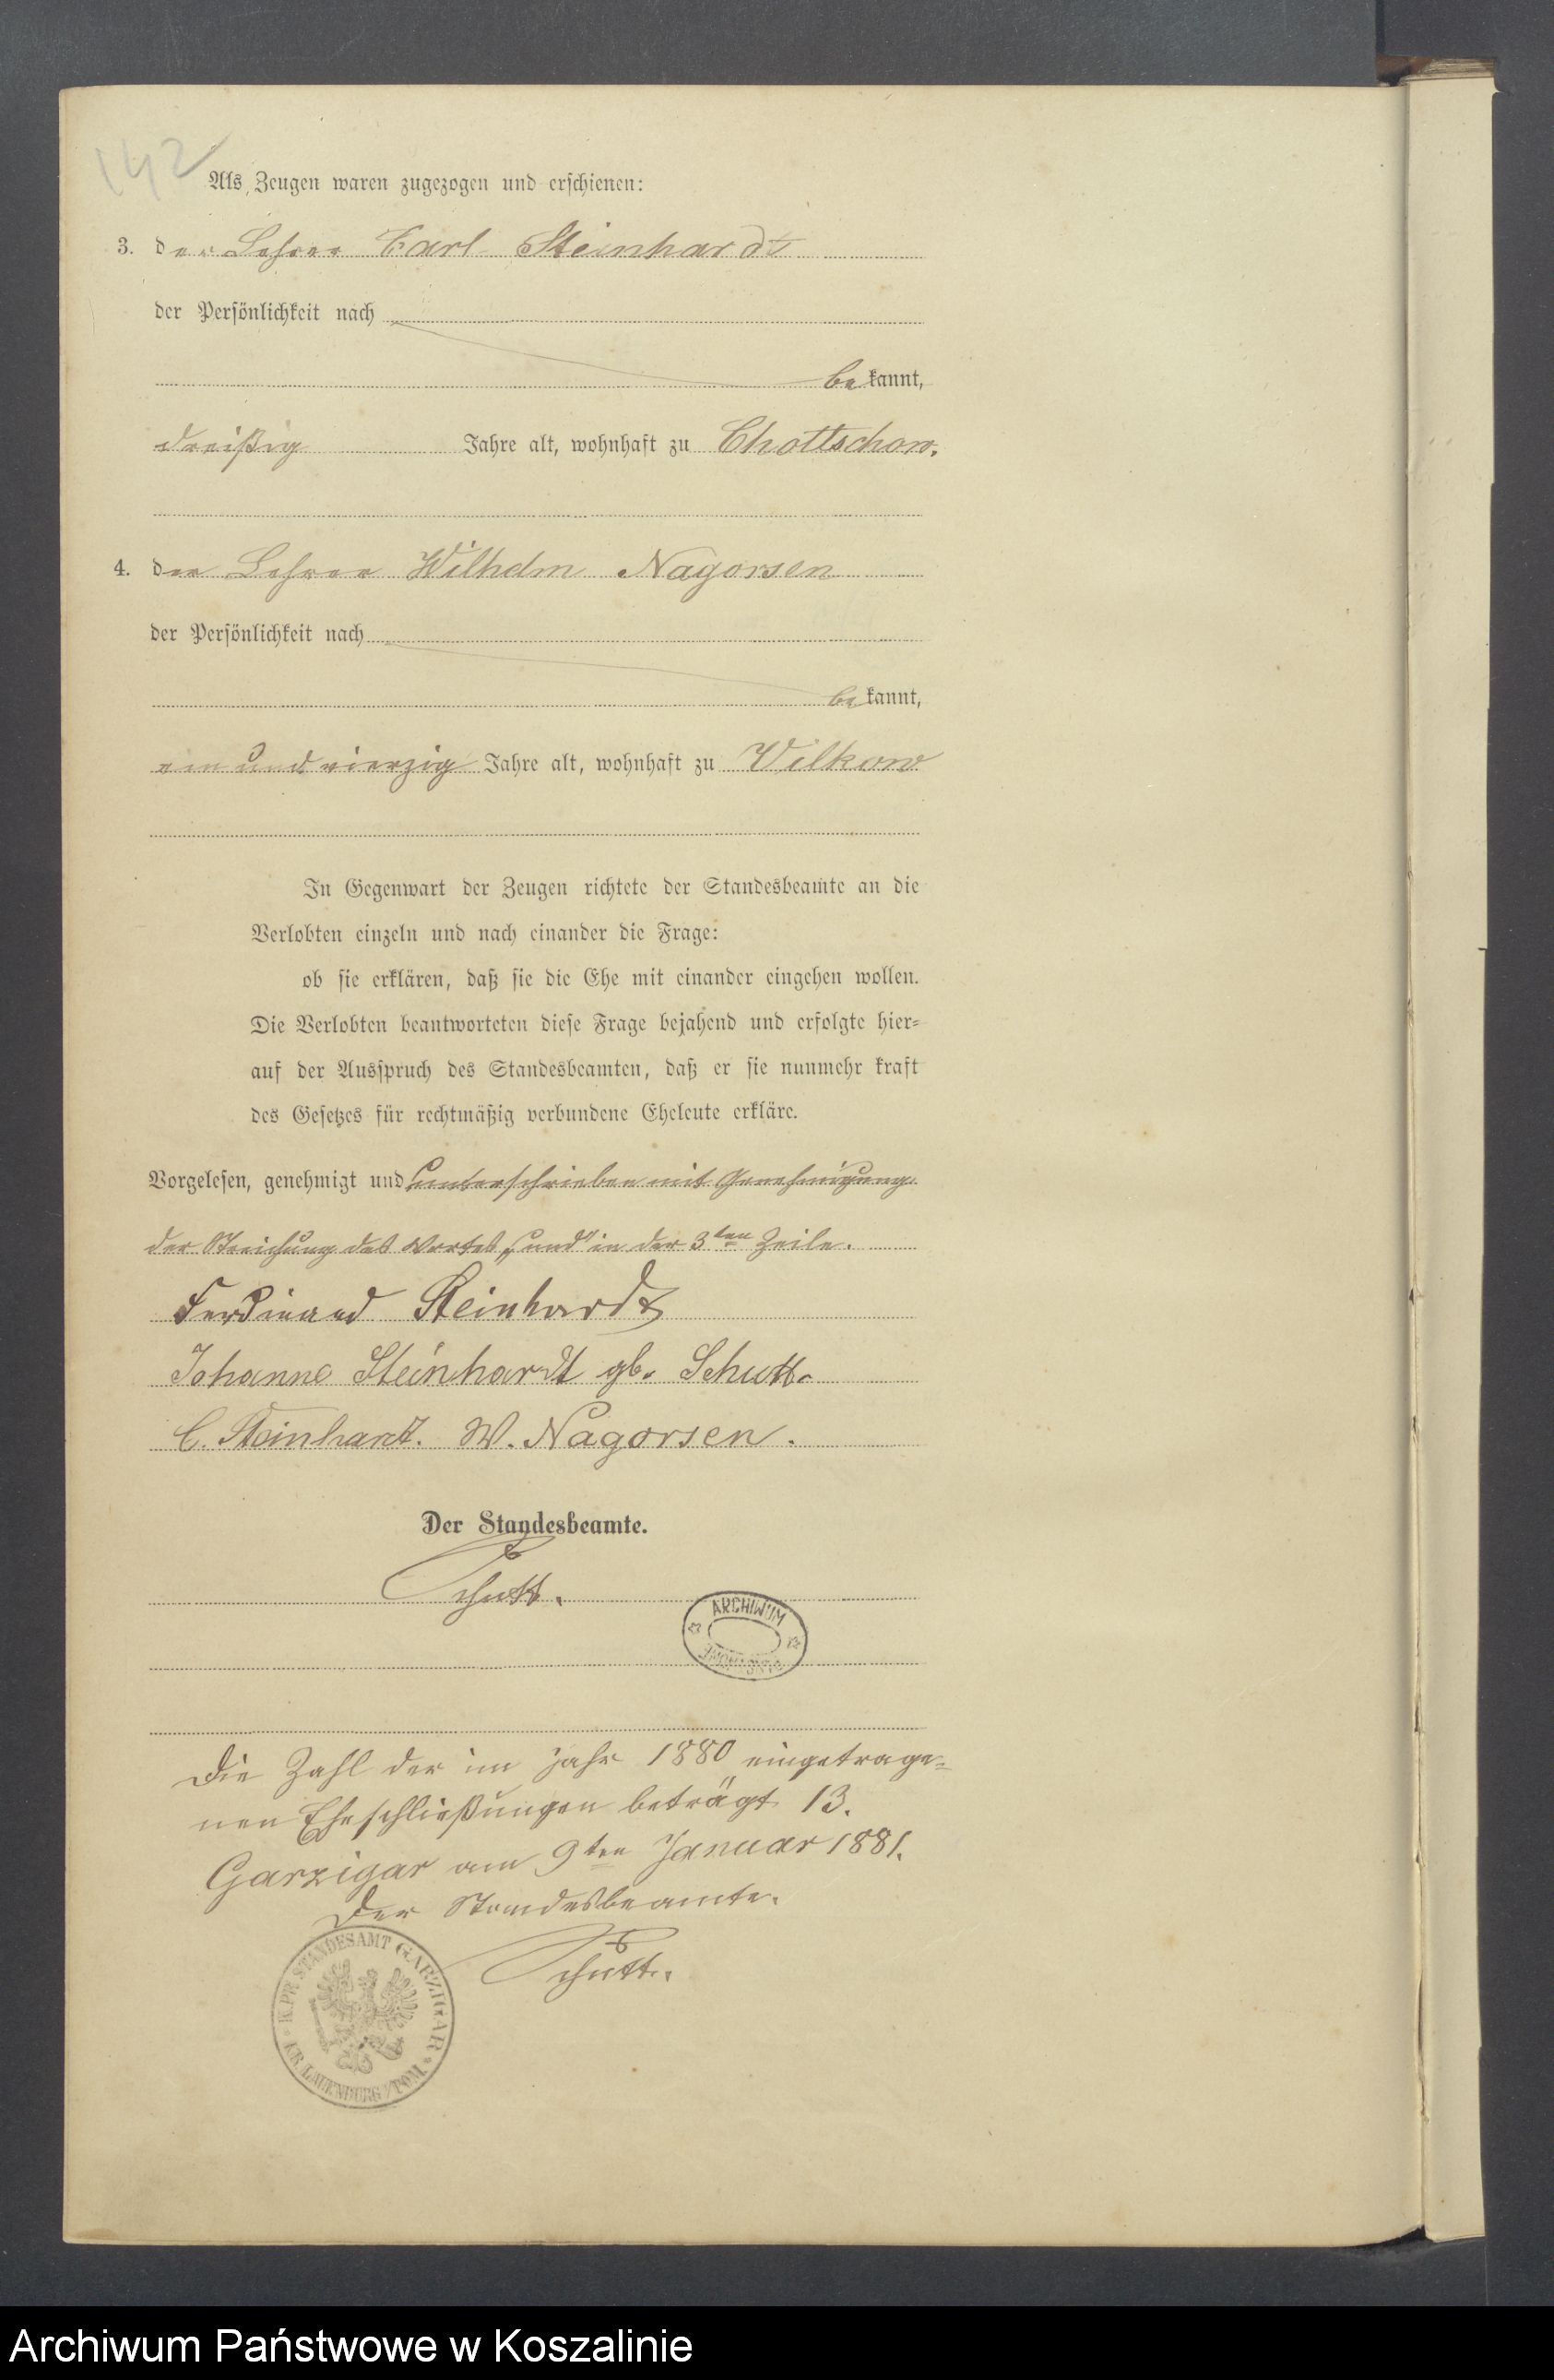 142
Als Zeugen waren zugezogen und erschienen:
3. der Lehrer Carl Steinhardt
der Persönlichkeit nach
bekannt,
dreißig Jahre alt, wohnhaft zu Chottschow.
4. der Lehrer Wilhelm Nagorsen
der Persönlichkeit nach
bekannt,
ein und vierzig Jahre alt, wohnhaft zu Vilkow
In Gegenwart der Zeugen richtete der Standesbeamte an die
Verlobten einzeln und nach einander die Frage:
ob sie erklären, daß sie die Ehe mit einander eingehen wollen.
Die Verlobten beantworteten diese Frage bejahend und erfolgte hier=
auf der Ausspruch des Standesbeamten, daß er sie nunmehr kraft
des Gesetzes für rechtmäßig verbundene Eheleute erkläre.
Vorgelesen, genehmigt und unterschrieben mit Genehmigung
der Streichung des Wortes „und" in der 3ten Zeile.
Ferdinand Steinhardt
Johanne Steinhardt gb. Schutt.
C. Steinhardt. W. Nagorsen.
Der Standesbeamte.
Schutt.
ARCHIWUM
Die Zahl der im Jahr 1880 eingetrage=
nen Eheschließungen beträgt 13.
Garzigar am 9ten Januar 1881.
Der Standesbeamte.
Schutt.
K. PR. STANDESAMT GARZIGAR
KR. LAUENBURG / POM.
Archiwum Państwowe w Koszalinie